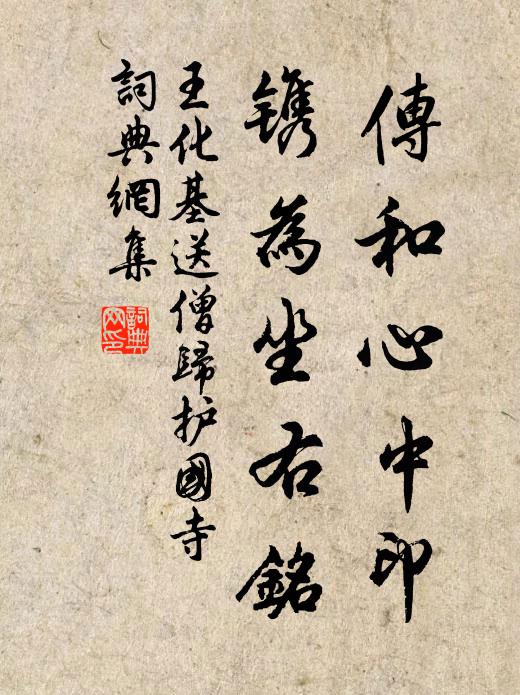 傳和心中印
鐫為坐右銘
王化基送僧歸护國寺
詞典網集
詞典網印